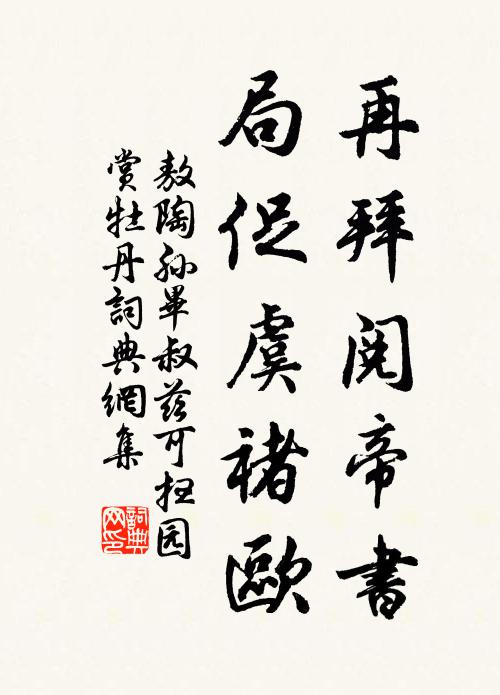 再拜閱帝書
局促虞褚歐
敖陶孫畢叔茲可扭园
賞牡丹詞典網集
詞典
网印